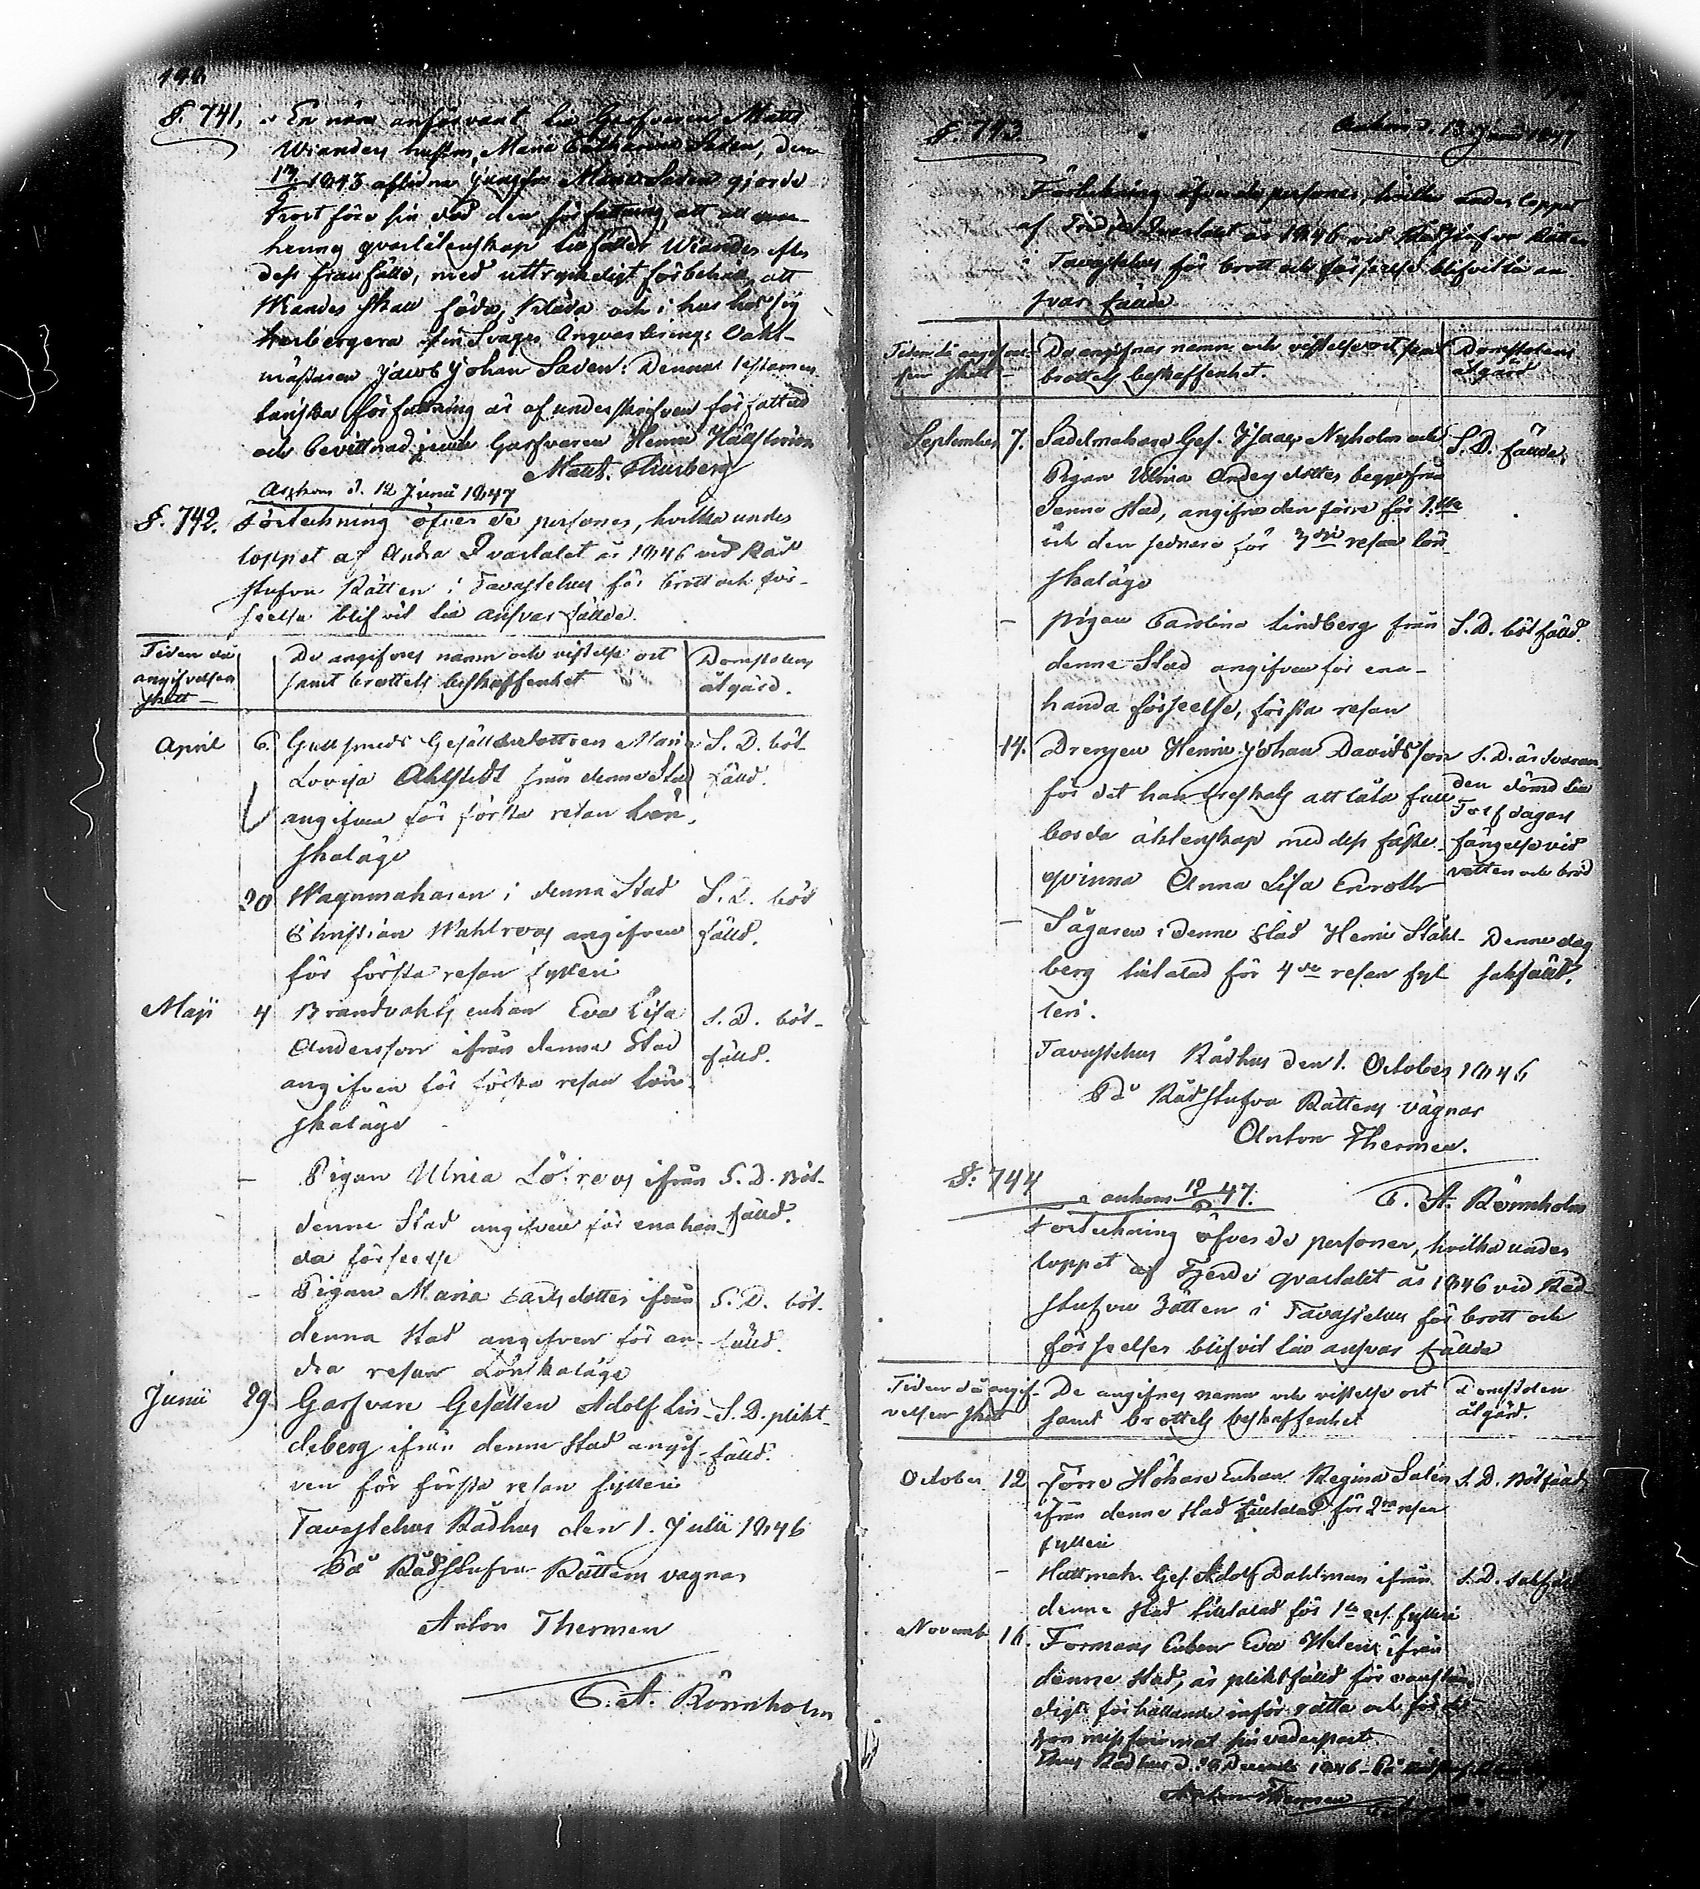 190.
§. 741.
En näm anförvant til Garfvaren Matts
Wianders hustru, Maria Catharina Saden, den
17/2 1843 aflidna jungfru Maria Saden gjorde
kort före sin död den författning, att all
hennes qvarlåtenskap tilföller Wiander efter
dess franfälle, med uttryckeligt förbehåll, att
Wiander skall föda, kläda och i hus hos sig
herbergera sin Svåger Ingvarterings Vakt-
mästaren Jacob Johan Saden. Denna testamen
tariska författning är af underskrifven författad
och bevittnad jemte Garfvaren Henric Hällström
Matts. Thurberg
Ankom d. 12 Junii 1847
§. 742. Förtekning öfver de personer, hvilka under
loppet af Andra Qvartalet år 1846 vid Råd
stufvu Rätten i Tavastehus för brott och för-
seelse blifvit till ansvar fällde.
Tiden då
angifvelsen
skett –
De angifnes namn och vistelse ort
samt brottets beskaffenhet
Domstolens
åtgärd.
April 6. Gullsmeds Gesälls dottren Maria S. D. böt-
Lovisa Ahlstedt från denna Stad fälld.
angifven för första resan Lön-
skaläge
20 Wagnmakaren i denna Stad S. D. böt
Christian Wahlroos angifven fälld.
för första resan fylleri
Maji 4 Brandvakts enkan Eva Lisa S. D. böt-
Andersson ifrån denna Stad fälld.
angifven för första resan lön-
skaläge
– Pigan Ulrica Löfroos ifrån S. D. Böt-
denna Stad angifven för enahan- fälld.
da förseelse
– Pigan Maria Carlsdotter ifrån S. D. böt-
denna stad angifven för an- fälld.
dra resan Lönskaläge
Junii 29. Garfvare Gesällen Adolf Lin- S. D. plikt-
deberg ifrån denna stad angif- fälld.
ven för första resan fylleri
Tavastehus Rådhus den 1. Julii 1846
På Rådstufvu Rättens vägnar
Anton Thermen
C. A. Rönnholm
§. 743
Ankom d. 13 Junii 1847
Förtekning öfver de personer, hvilka under loppet
af Tredje Qvartalet år 1846 vid Rådstufvu Rätten
i Tavastehus för brott och förseelse blifvit til an-
svar fällde.
Tiden då angifvel-
sen skett –
De angifnas namn och vistelseort samt
brottets beskaffenhet.
Domstolens
åtgärd
September 7. Sadelmakare Ges. Isaac Nyholm och S. D. fällde.
Pigan Ulrica Anders dotter begge från
denna stad, angifna den förre för 1:sta
och den sednare för 3dje resan lön-
skaläge
– pigan Carolina Lindberg från S. D. böt fälld.
denna Stad angifven för ena-
handa förseelse, första resan
14. Drengen Henric Johan Davidsson S. D. är svaran-
för det han treskats att låta full den dömd till
borda äktenskap med dess fäste- Tolf dagars
qvinna Anna Lisa Enroth fängelse vid
vatten och bröd
– Sågaren i denna stad Henric Stål- Denne dag
berg tiltalad för 4de resan fyl sakfälld.
leri.
Tavastehus Rådhus den 1. October 1846
På Rådstufvu Rättens vägnar
Anton Thermen.
C. A. Rönnholm
§. 744
ankom 12/6 47.
Förtekning öfver de personer, hvilka under
loppet af Fjerde qvartalet år 1846 vid Råd-
stufvu Rätten i Tavastehus för brott och
förseelser blifvit till ansvar fällde
Tiden då angif-
velsen skett
De angifnes namn och vistelse ort
samt brottets beskaffenhet
Domstolens
åtgärd.
October 12 Förre Hökare Enkan Regina Salén S. D. Bötfäld
ifrån denna stad tilltalad för 2dra resan
fylleri
– Hattmak. Ges. Adolf Dahlman ifrån S. D. sakfäld
denna stad tilltalad för 1sta res. fylleri
Novemb 16. Formans Enkan Eva Helena ifrån
denna stad, är pliktfälld för oanstän
digt förhållande inför rätta och för det
hon missfirmat sin vederpart.
Thus Rådhus d. December 1846 – På
Anton Thermen